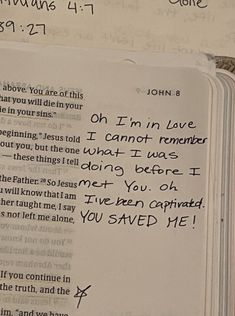 4:7
39:27
JOHN 8
above. You are of this
hat you will die in your
e in your sins."
beginning," Jesus told
out you, but the one
—these things I tell
the Father. 28 So Jesus
u will know that I am
her taught me, I say
s not left me alone,
If you continue in
the truth, and the
im, "and we have
oh I'm in Love
I cannot remember
what I was
doing before I
met You. oh
I've been captivated.
YOU SAVED ME!